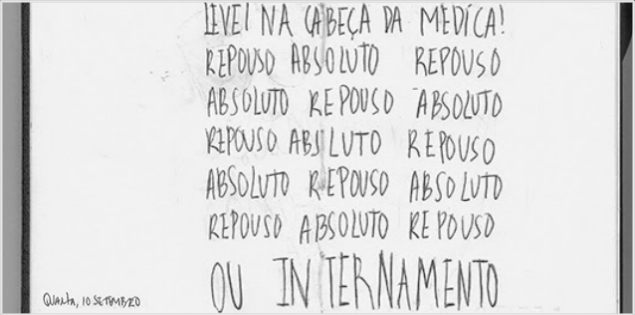 LEVEI NA CABEÇA DA MÉDICA!
REPOUSO ABSOLUTO REPOUSO
ABSOLUTO REPOUSO ABSOLUTO
REPOUSO ABSOLUTO REPOUSO
ABSOLUTO REPOUSO ABSOLUTO
REPOUSO ABSOLUTO REPOUSO
OU INTERNAMENTO
QUARTA, 10 SETEMBRO